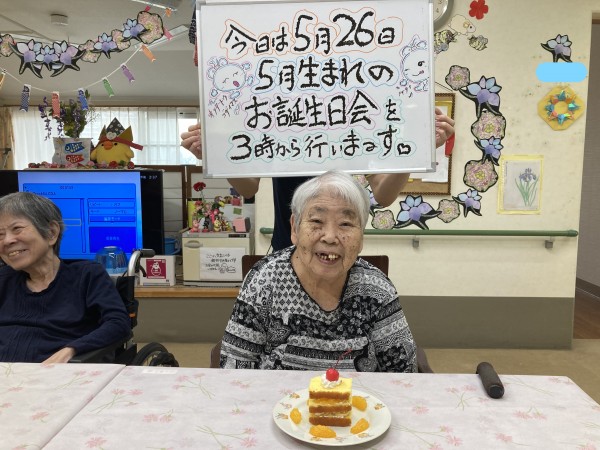 今日は5月26日
5月生まれの
お誕生日会を
3時から行います。